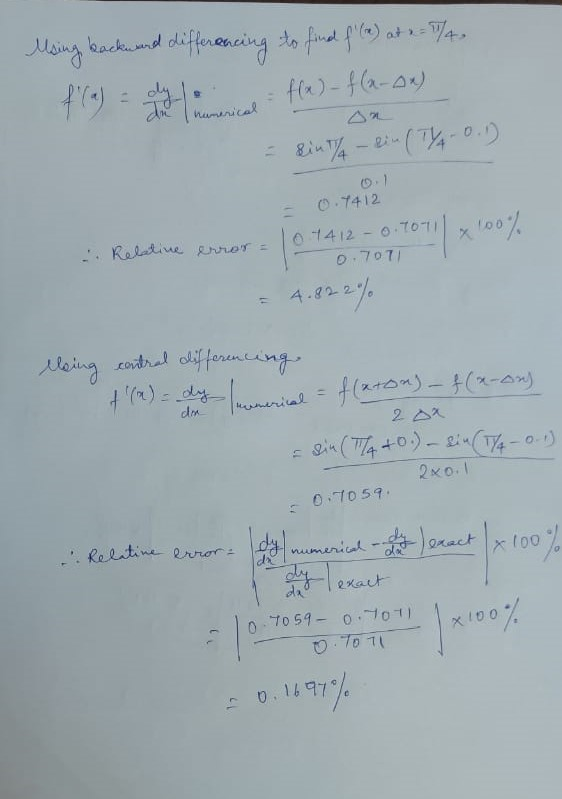 Using backward differencing to find f'(x) at x = π/4,
f'(x) = dy/dx |numerical = f(x) - f(x-Δx) / Δx
= sin π/4 - sin(π/4 - 0.1) / 0.1
= 0.7412
∴ Relative error = |0.7412 - 0.7071 / 0.7071| × 100%
= 4.822%
Using central differencing,
f'(x) = dy/dx |numerical = f(x+Δx) - f(x-Δx) / 2 Δx
= sin(π/4 + 0.) - sin(π/4 - 0.1) / 2×0.1
= 0.7059.
∴ Relative error = |dy/dx |numerical - dy/dx |exact / dy/dx |exact| × 100%
= |0.7059 - 0.7071 / 0.7071| × 100%
= 0.1697%